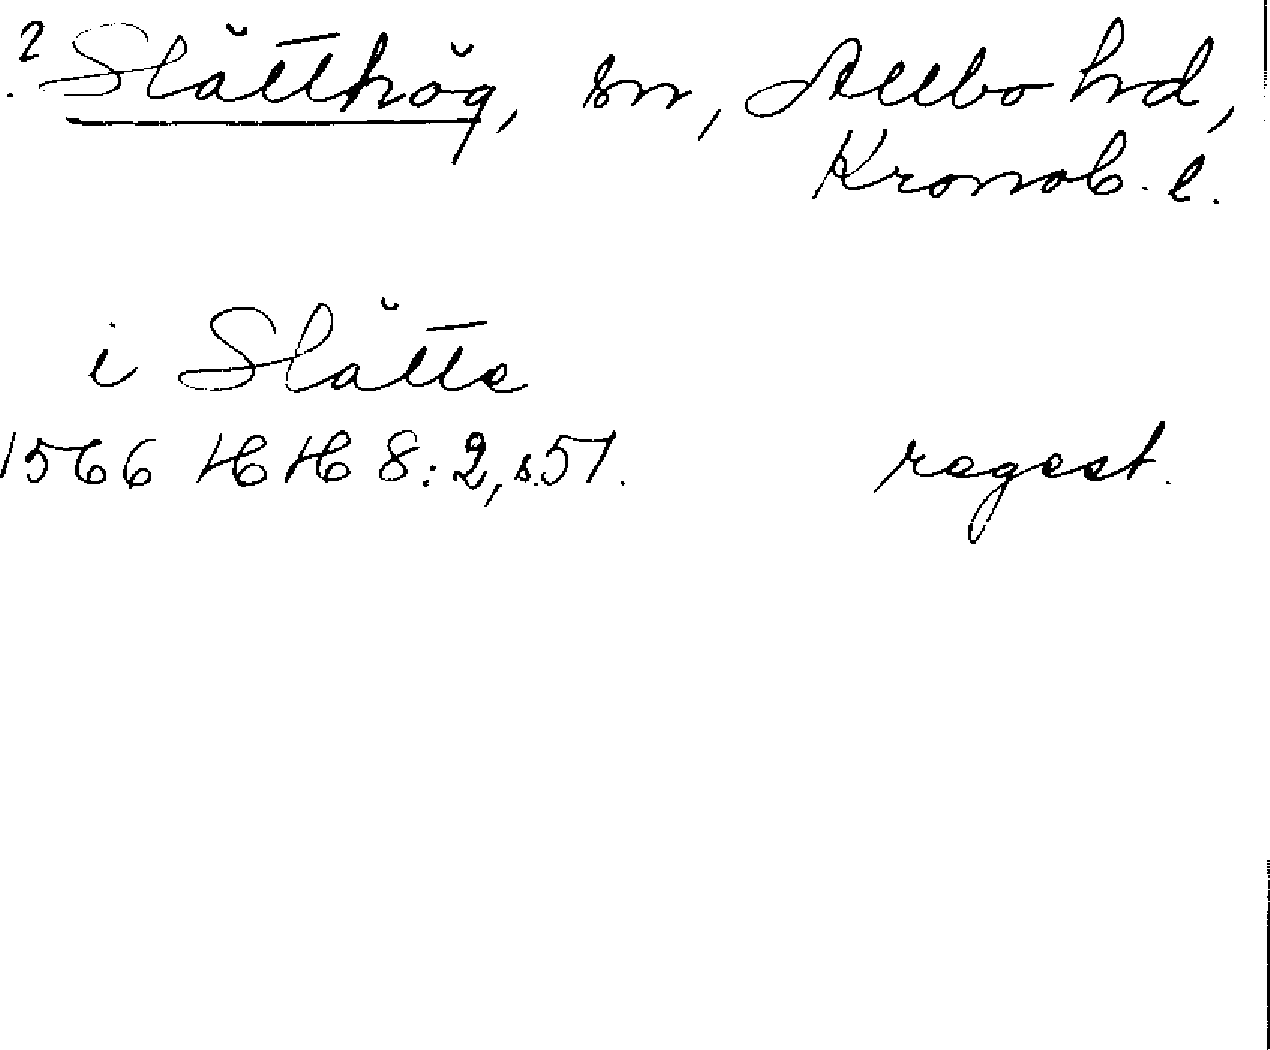 ? Slätthög, sn, Allbo hd,
Kronob. l.
i Slätte
1566 HH 8:2, s. 51. regest.